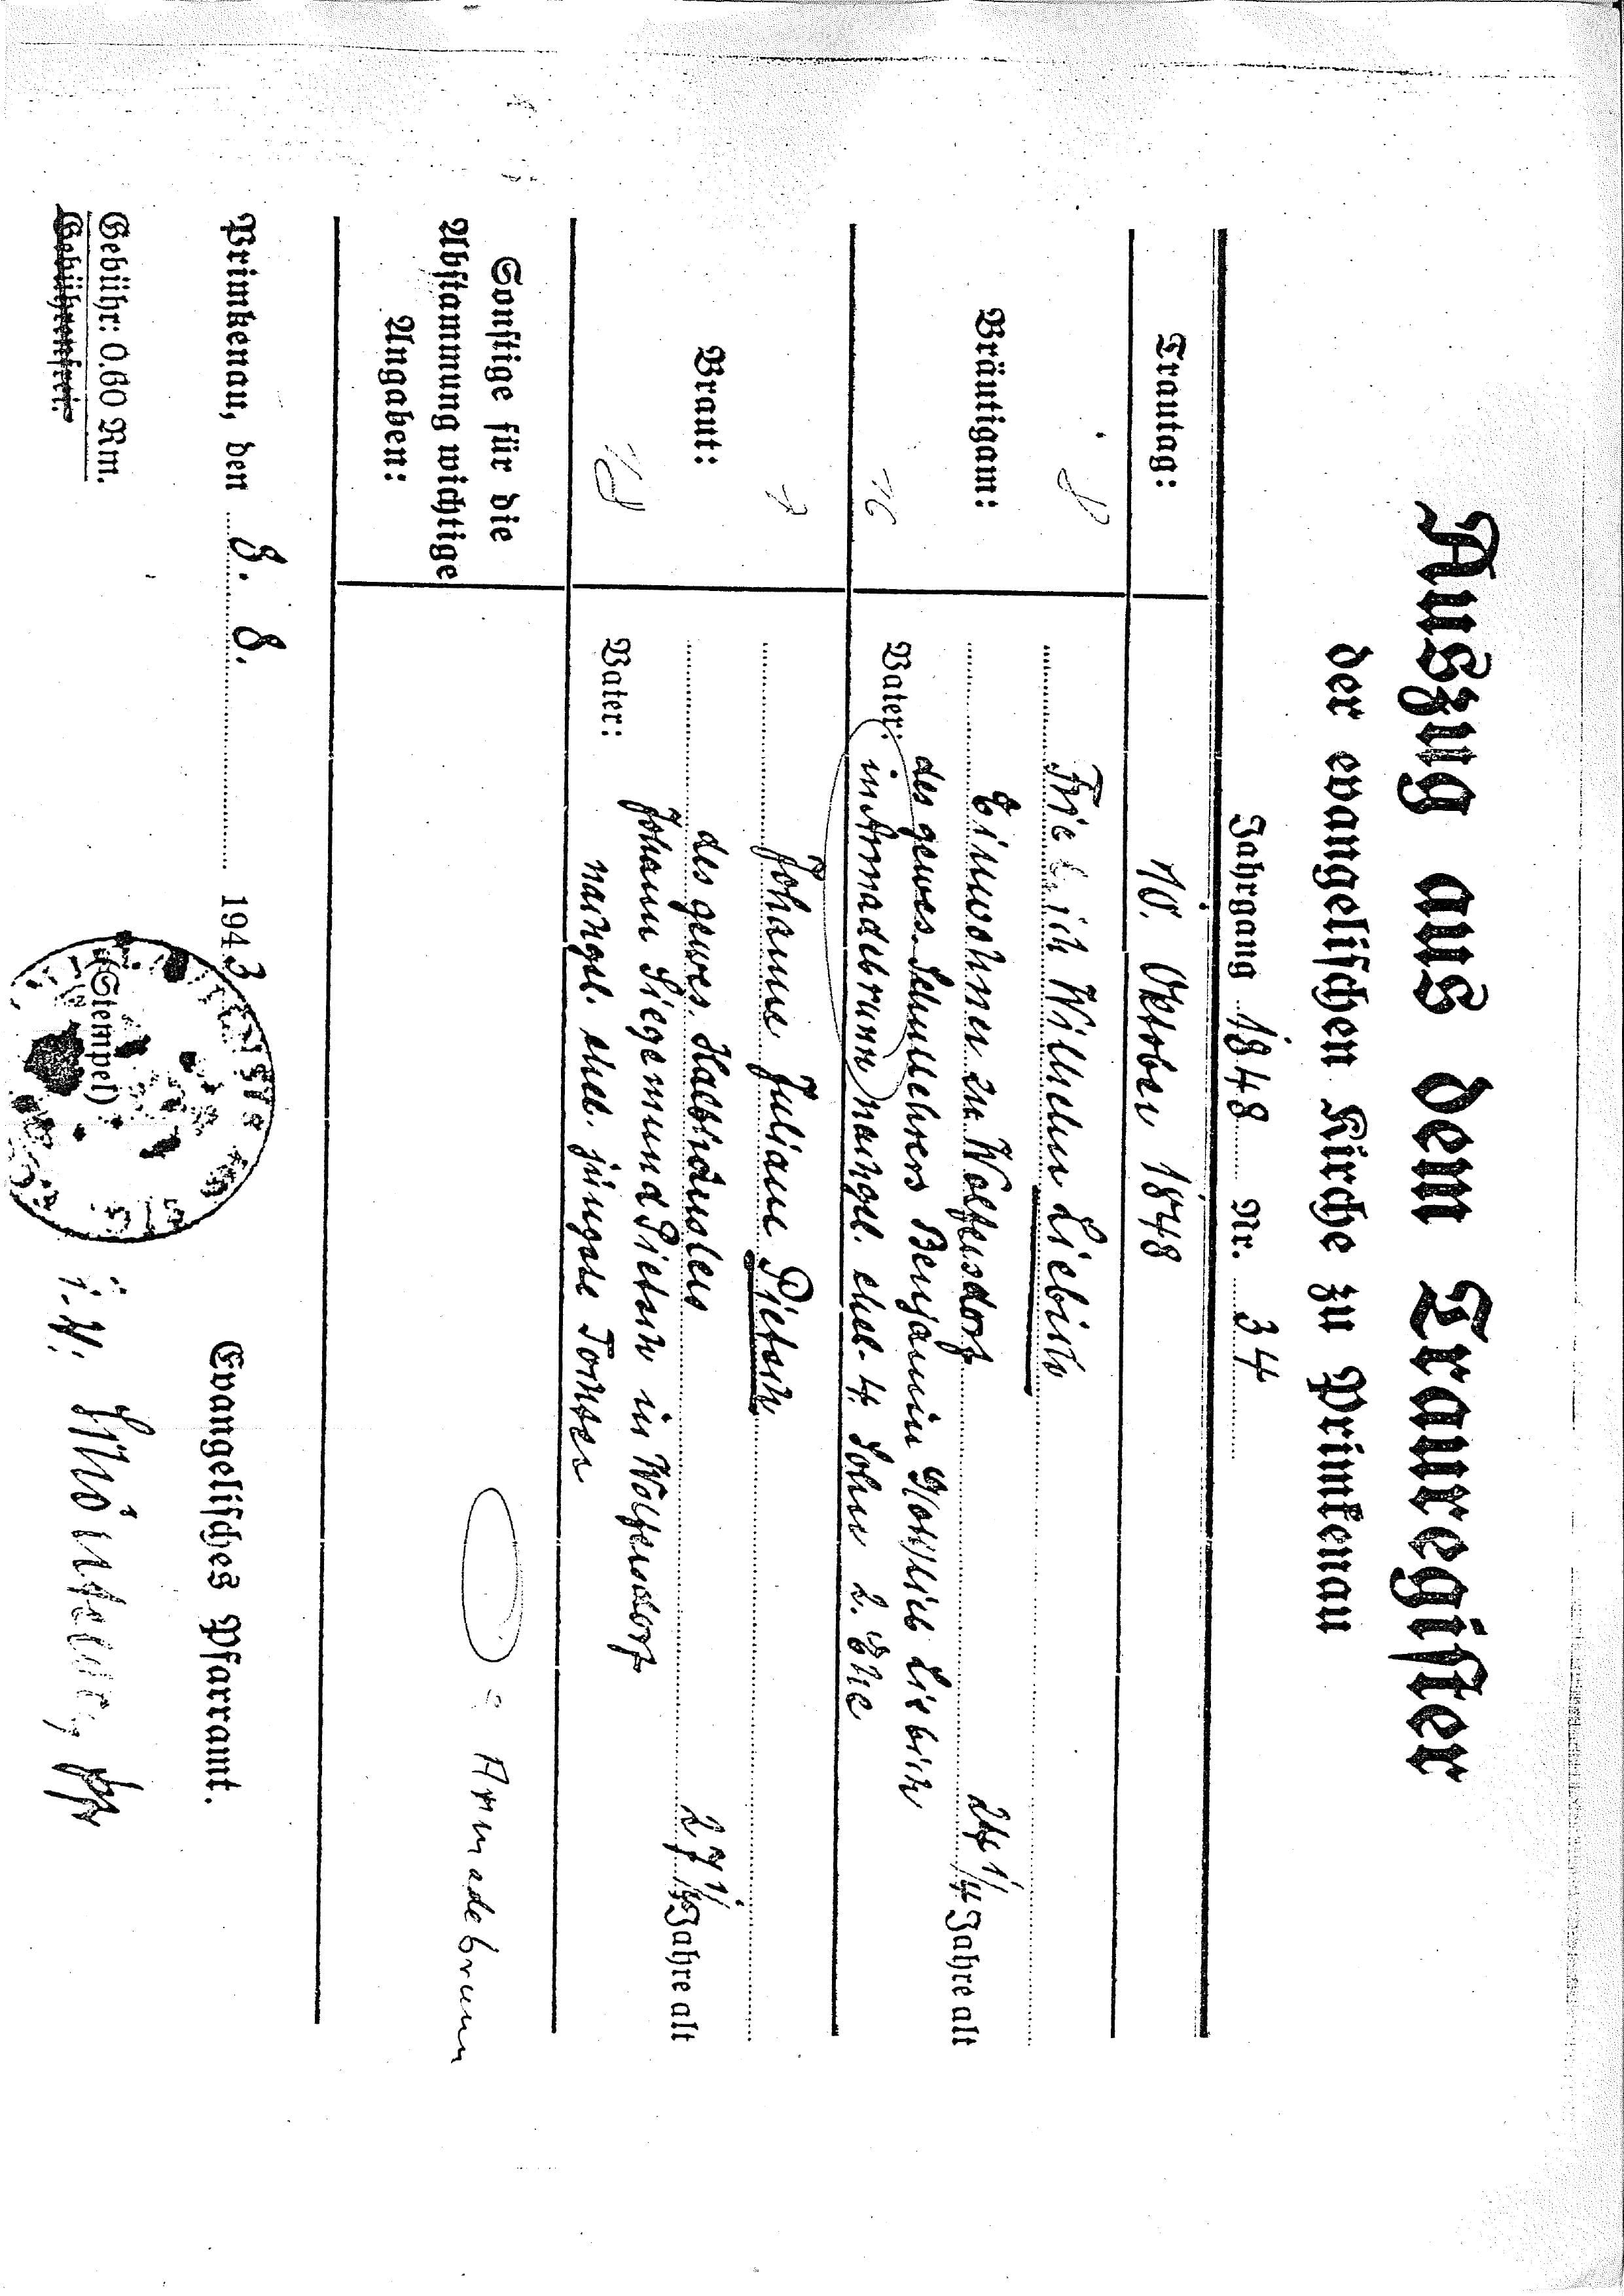 Auszug aus dem Trauregister
der evangelischen Kirche zu Primkenau
Jahrgang 1848 Nr. 34
Trautag: 10. Oktober 1848
8
Bräutigam: Friedrich Wilhelm Liebich
Einwohner zu Wolfersdorf 24 1/4 Jahre alt
16
Vater: des gewes. Schullehrers Benjamin Gottlieb Liebich
in Armadebrunn nachgel. ehel. 4. Sohn 2. Ehe
7
Braut: Johanne Juliane Pietsch
des gewes. Halbhäuslers 27 1/4 Jahre alt
18
Vater: Johann Siegemund Pietsch in Wolfersdorf
nachgel. ehel. jüngste Tochter
Sonstige für die
Abstammung wichtige
Angaben:
= Armadebrunn
Primkenau, den 8. 8. 1943
(Stempel)
Evangelisches Pfarramt.
Gebühr: 0.60 Rm.
Gebührenfrei.
i.V.